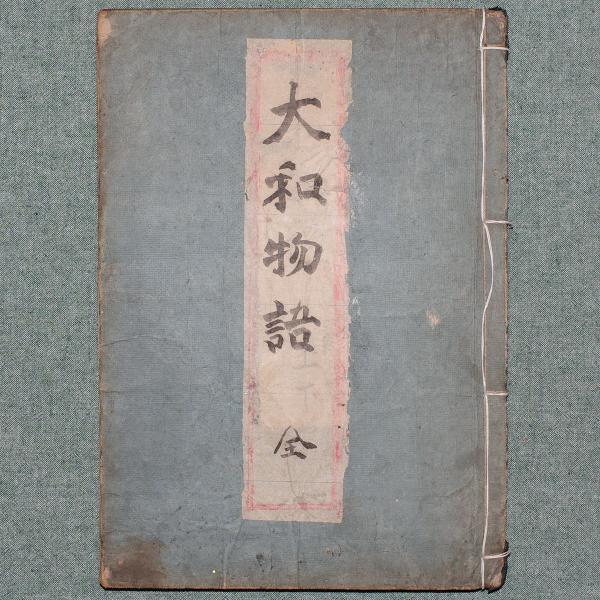 大和物語 全